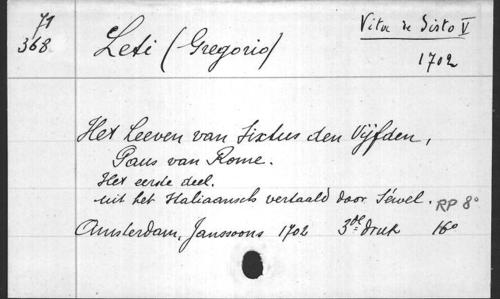 71
368
Leti (Gregorio)
Vita de Sisto V
1702
Het Leeven van Sixtus den Vijfden,
Paus van Rome.
Het eerste deel.
uit het Italiaansch vertaald door Séwel.
RP 8º
Amsterdam, Janssoons 1702 3de druk 16º